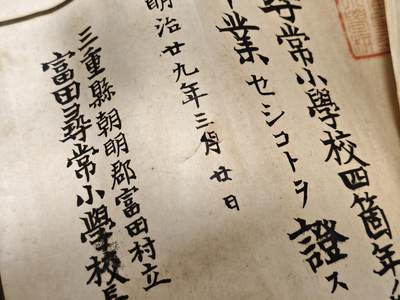 尋常小學校四箇年ノ
卒業セシコトヲ證ス
明治廿九年三月廿日
三重縣朝明郡富田村立
富田尋常小學校長